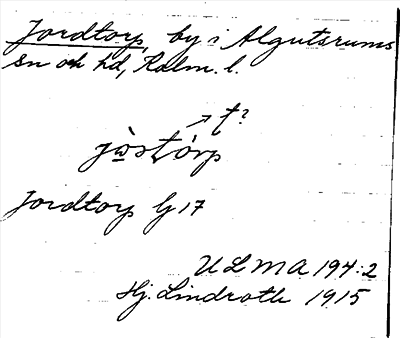 Jordtorp, by i Algutsrums
sn och hd, Kalm. l.
→ t?
Jordtorp Gj 17
ULMA 194:2
Hj. Lindroth 1915